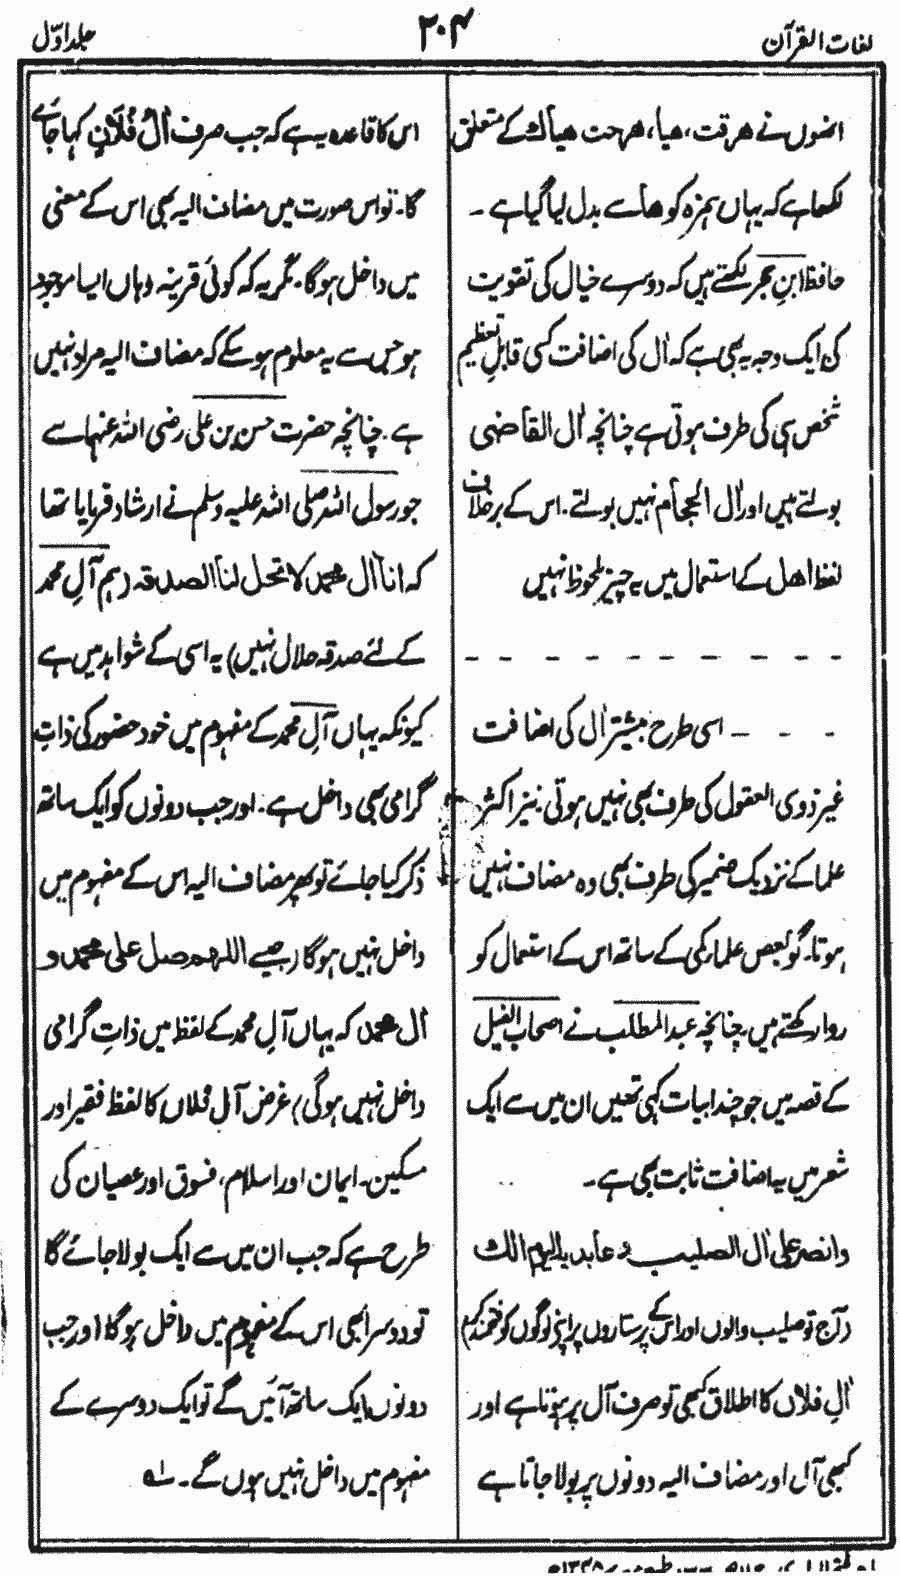 لغات القرآن
۲۰۴
جلد اوّل
انھوں نے ھرقت، ھیا، ھرحت ھیأك کے متعلق
لکھا ہے کہ یہاں ہمزہ کو ھاسے بدل لیا گیا ہے۔
حافظ ابنِ حجر لکھتے ہیں کہ دوسرے خیال کی تقویت
کی ایک وجہ یہ بھی ہے کہ اٰل کی اضافت کسی قابلِ تعظیم
شخص ہی کی طرف ہوتی ہے چنانچہ اٰل القاضی
بولتے ہیں اور اٰل الحجام نہیں بولتے۔ اس کے برخلاف
لفظ اھل کے استعمال میں یہ چیز ملحوظ نہیں
- - - - - - - - - -
- - - اسی طرح بیشتر اٰل کی اضافت
غیر ذوی العقول کی طرف بھی نہیں ہوتی۔ نیز اکثر
علما کے نزدیک ضمیر کی طرف بھی وہ مضاف نہیں
ہوتا۔ گو بعض علمار کمی کے ساتھ اس کے استعمال کو
روا رکھتے ہیں۔ چنانچہ عبد المطلب نے اصحاب الفیل
کے قصہ میں جو چند ابیات کہی تھیں ان میں سے ایک
شعر میں یہ اضافت ثابت بھی ہے۔
وانصر علی اٰل الصلیب وعابدیہ الیوم الك
(آج تو صلیب والوں اور اس کے پرستاروں پر اپنے لوگوں کو فتحمند کر)
اٰلِ فلاں کا اطلاق کبھی تو صرف آل پر ہوتا ہے اور
کبھی آل اور مضاف الیہ دونوں پر بولا جاتا ہے
اس کا قاعدہ یہ ہے کہ جب صرف اٰلُ فُلَانٍ کہا جائے
گا۔ تو اس صورت میں مضاف الیہ بھی اس کے معنی
میں داخل ہوگا۔ مگر یہ کہ کوئی قرینہ وہاں ایسا موجود
ہو جس سے یہ معلوم ہو سکے کہ مضاف الیہ مراد نہیں
ہے۔ چنانچہ حضرت حسن بن علی رضی اللہ عنہما سے
جو رسول اللہ صلی اللہ علیہ وسلم نے ارشاد فرمایا تھا
کہ انا اٰل محمد لا تحل لنا الصدقہ (ہم آلِ محمد
کے لئے صدقہ حلال نہیں) یہ اسی کے شواہد میں ہے
کیونکہ یہاں آلِ محمد کے مفہوم میں خود حضور کی ذاتِ
گرامی بھی داخل ہے۔ اور جب دونوں کو ایک ساتھ
ذکر کیا جائے تو پھر مضاف الیہ اس کے مفہوم میں
داخل نہیں ہوگا (جیسے اللهم صل علی محمد و
اٰل محمد کہ یہاں آلِ محمد کے لفظ میں ذاتِ گرامی
داخل نہیں ہوگی) غرض آل فُلاں کا لفظ فقیر اور
مسکین۔ ایمان اور اسلام، فسوق اور عصیان کی
طرح ہے کہ جب ان میں سے ایک بولا جائے گا
تو دوسرا بھی اس کے مفہوم میں داخل ہوگا اور جب
دونوں ایک ساتھ آئیں گے تو ایک دوسرے کے
مفہوم میں داخل نہیں ہوں گے۔ لہ